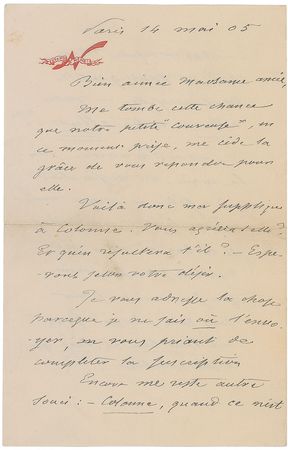 Paris 14 mai 05
Bien aimée Madame amie,
Me tombe cette chance
que notre petite "couveuse", en
ce moment prise, me cède la
grâce de vous répondre pour
elle.
Voilà donc ma supplique
à Colonne. Vous agréerait elle?
Et qu'en résultera t'il? — Espé-
rons selon votre désir.
Je vous adresse la chose
parceque je ne sais où l'envo-
yer, en vous priant de
completer la suscription
Encore me reste autre
souci: — Colonne, quand ce n'est